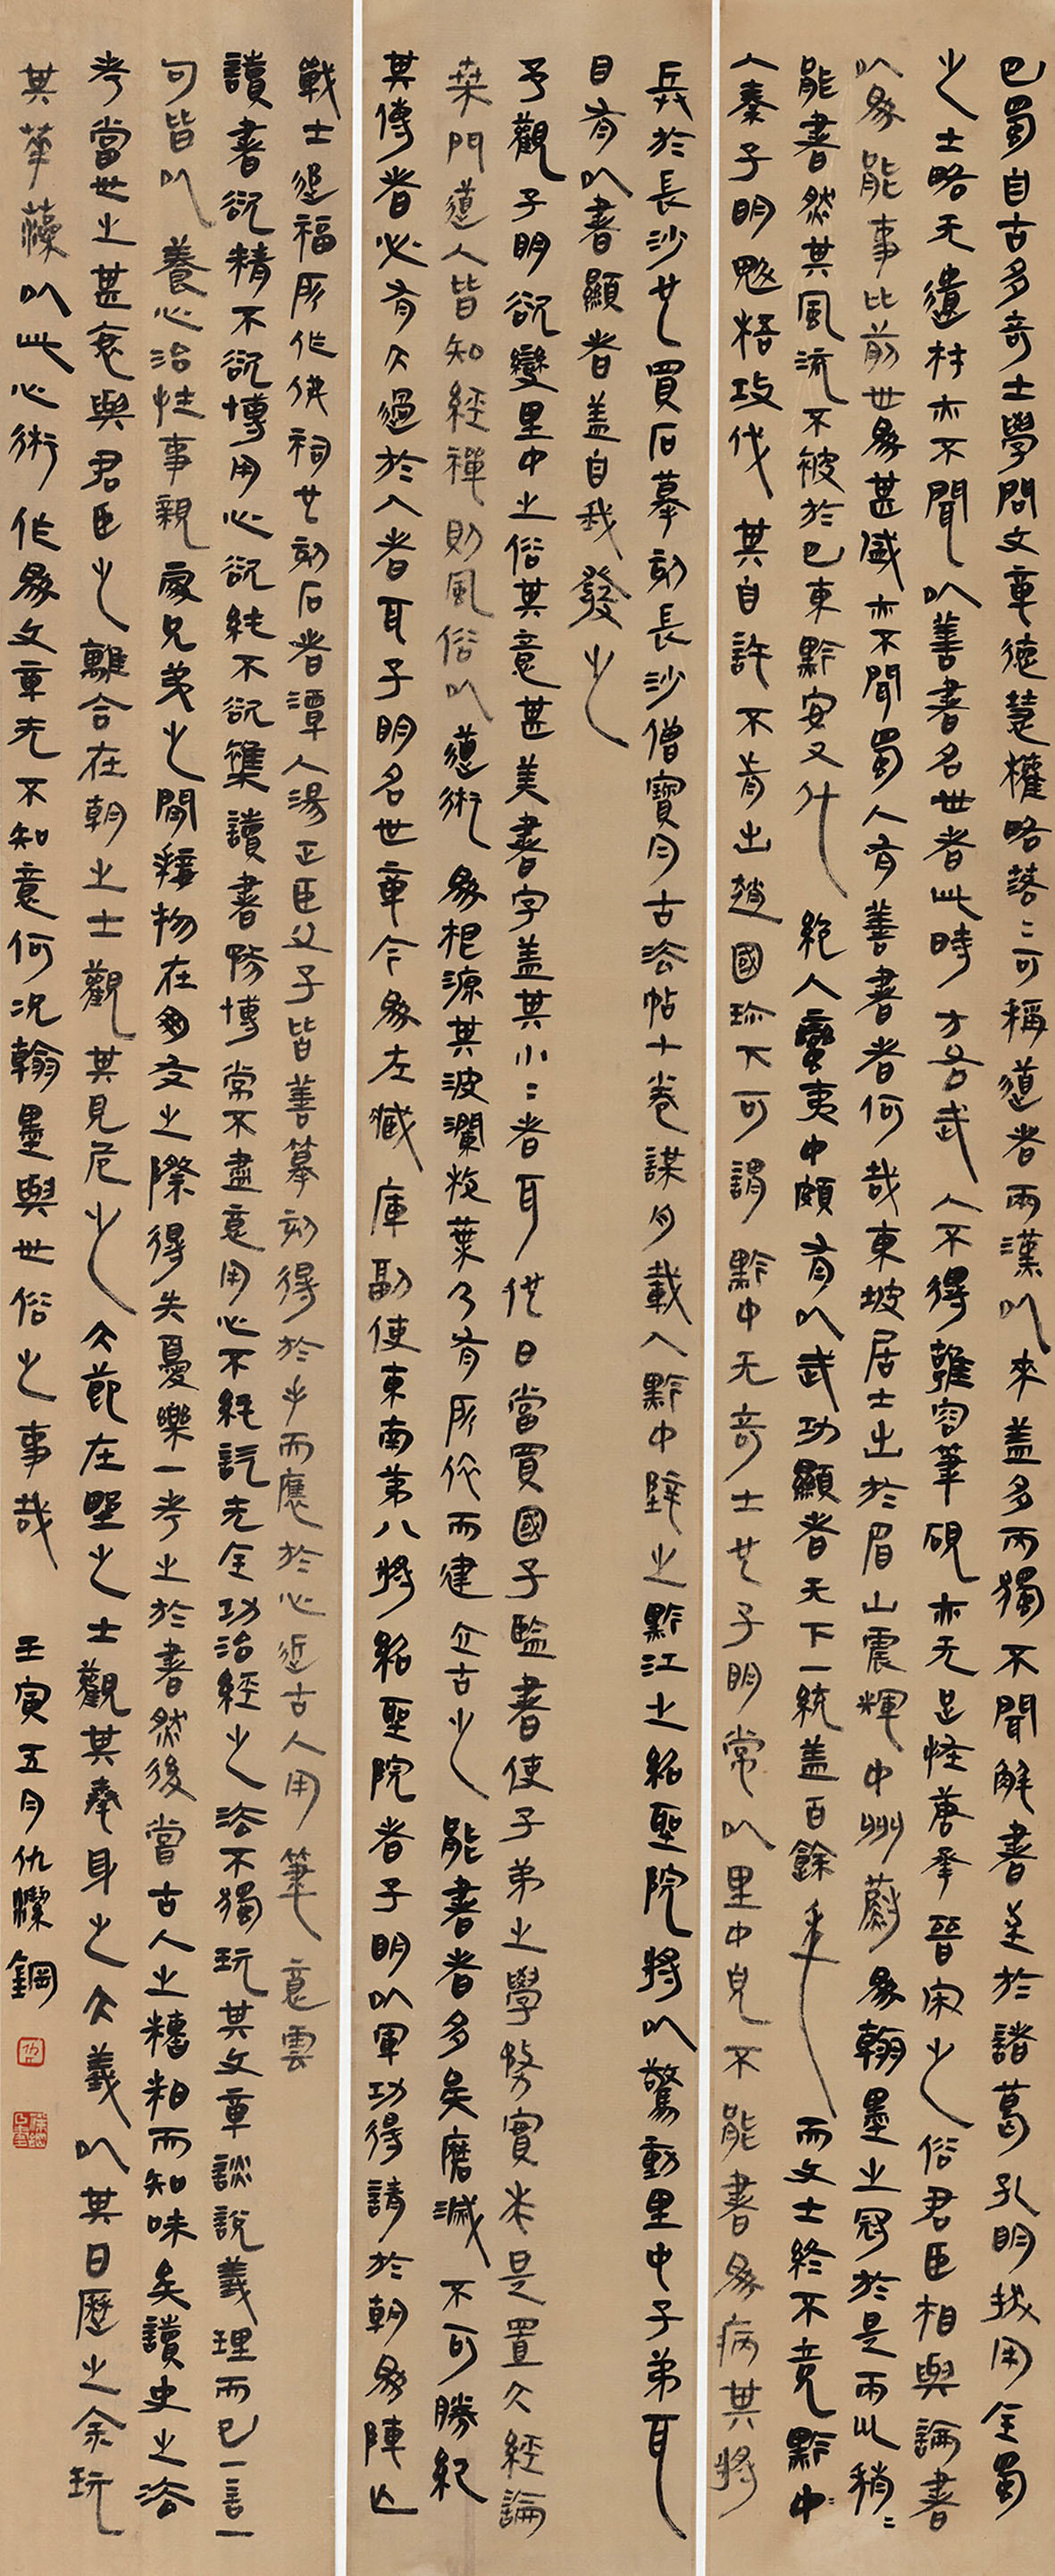 巴蜀自古多奇士學問文章德慧權略落〻可稱道者兩漢以來蓋多而獨不聞解書至於諸葛孔明拔用全蜀
之士略无遺材亦不聞以善書名世者此時方右武人不得雍容筆硯亦无足怪唐承晉宋之俗君臣相與論書
以爲能事比前世爲甚盛亦不聞蜀人有善書者何哉東坡居士出於眉山震輝中州蔚爲翰墨之冠於是兩川稍〻
能書然其風流不被於巴東黔安又斗絕入蠻夷中頗有以武功顯者天下一統蓋百餘年而文士終不竟黔中〻
人秦子明魁梧攻伐其自許不肯出趙國珍下可謂黔中无奇士也子明常以里中兒不能書爲病其將
兵於長沙也買石摹刻長沙僧寶月古法帖十卷謀舟載入黔中壁之黔江之紹聖院將以驚動里中子弟耳
目有以書顯者蓋自我發之
予觀子明欲變里中之俗其意甚美書字蓋其小〻者耳他日當買國子監書使子弟之學務實求是置大經論
桑門道人皆知經禪則風俗以道術爲根源其波瀾枝葉乃有所依而建立古之能書者多矣磨滅不可勝紀
其傳者必有大過於人者耳子明名世章今爲左藏庫副使東南第八將紹聖院者子明以軍功得請於朝爲陣亡
戰士追福所作佛祠也刻石者潭人湯正臣父子皆善摹刻得於手而應於心近古人用筆意雲
讀書欲精不欲博用心欲純不欲雜讀書務博常不盡意用心不純訖无全功治經之法不獨玩其文章談說義理而已一言一
句皆以養心治性事親處兄弟之間接物在朋友之際得失憂樂一考之於書然後嘗古人之糟粕而知味矣讀史之法
考當世之甚衰與君臣之離合在朝之士觀其見危之大節在野之士觀其奉身之大義以其日歷之余玩
其華藻以此心術作爲文章无不如意何況翰墨與世俗之事哉 壬寅五月仇鋼